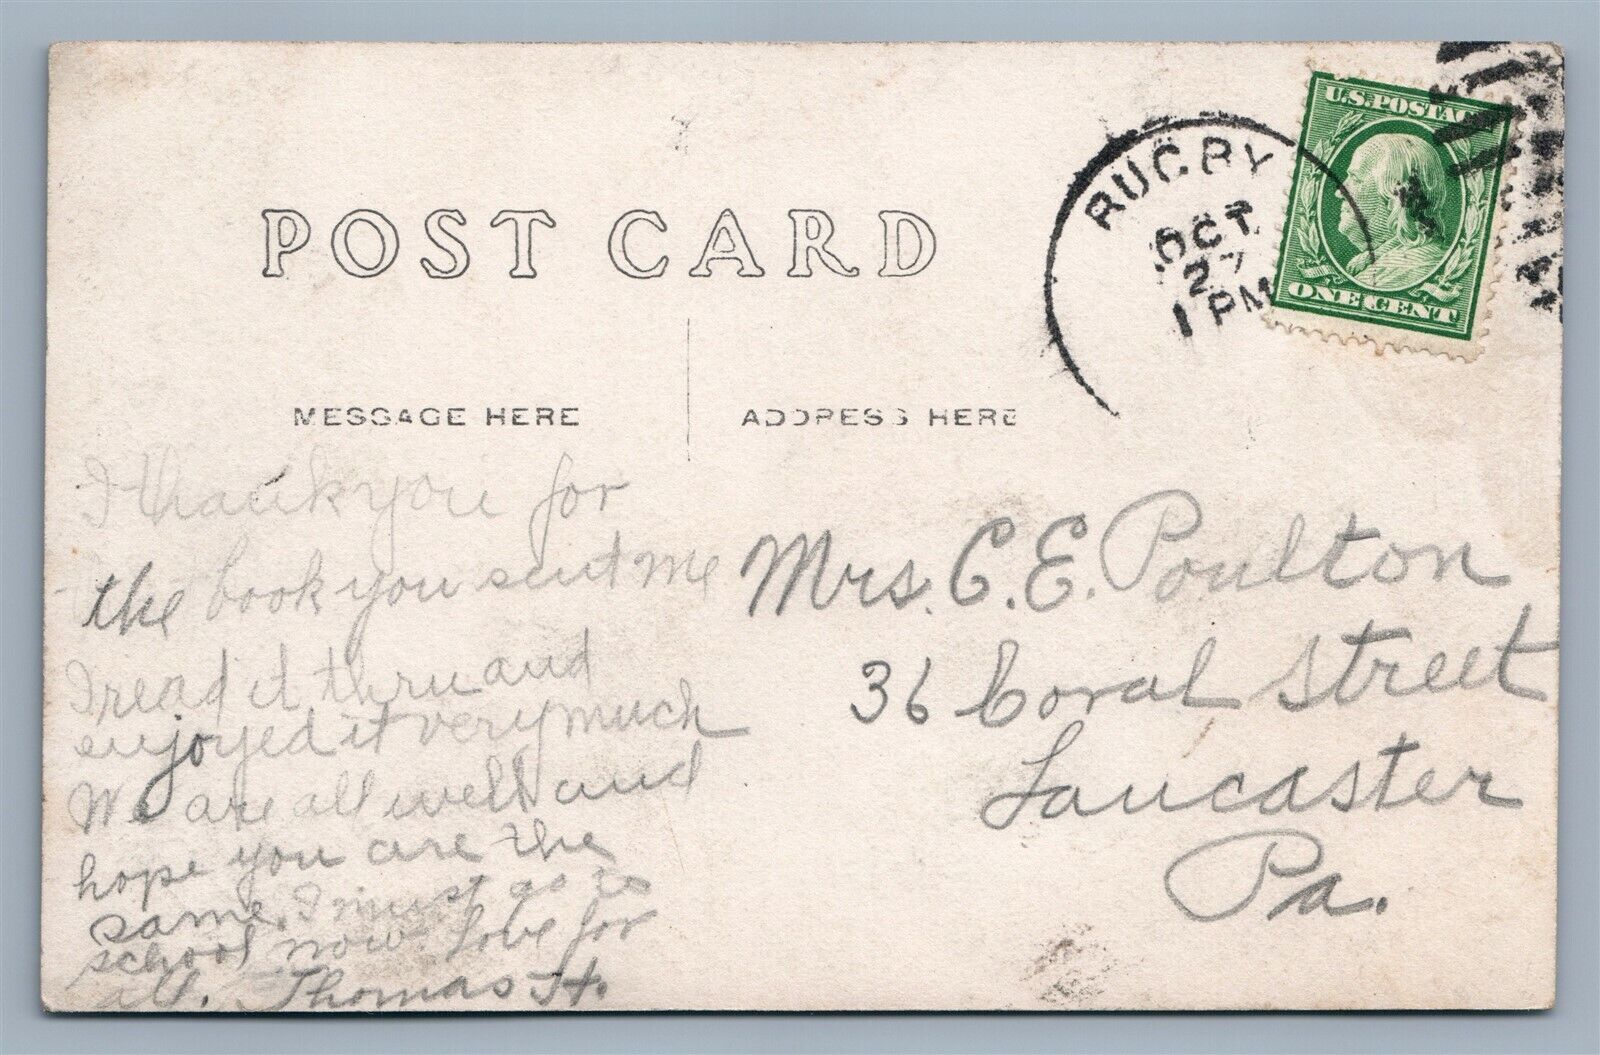 POST CARD
RUGBY
OCT
27
1 PM
U.S. POSTAG
ONE CENT
MESSAGE HERE
ADDRESS HERE
I thank you for
the book you sent me
I read it thru and
enjoyed it very much
We are all well and
hope you are the
same. I must go to
school now. Love for
all. Thomas H.
Mrs. C. E. Poulton
36 Coral Street
Lancaster
Pa.